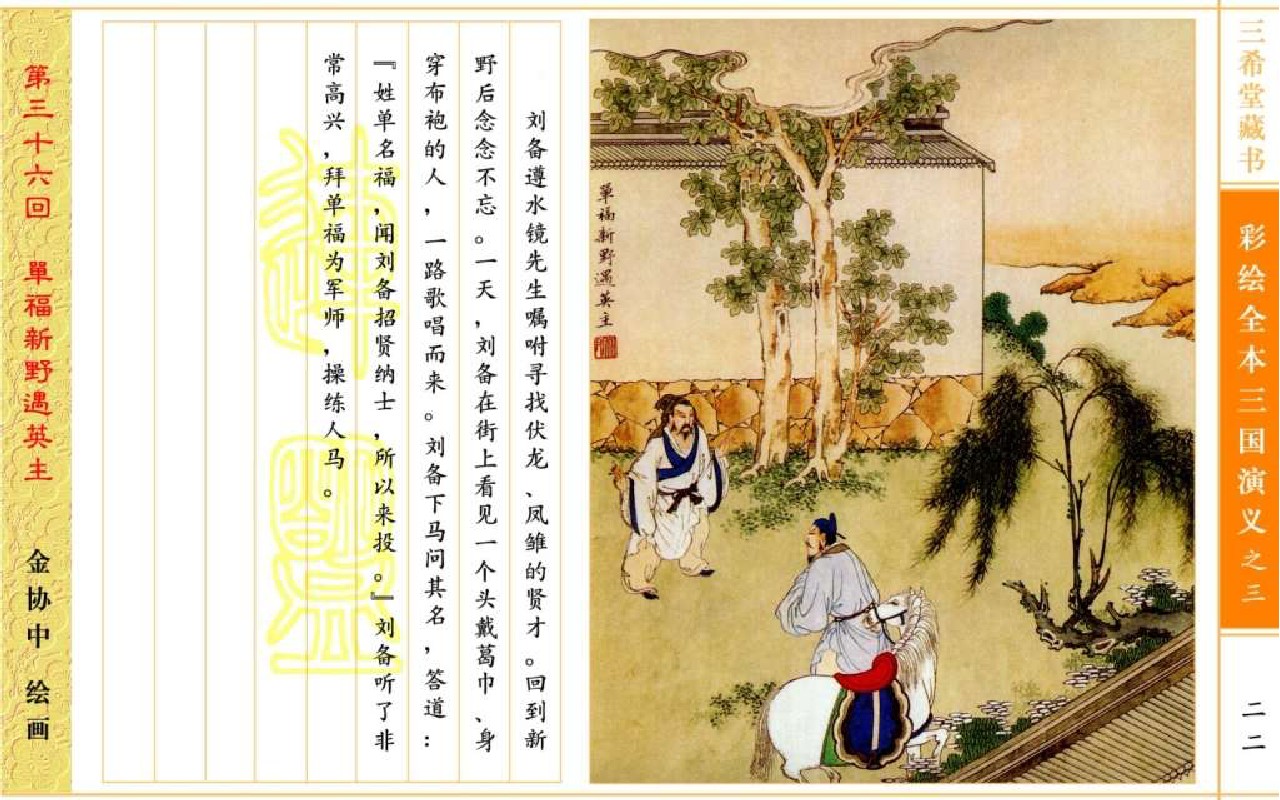 三希堂藏书
彩绘全本三国演义之三
二二
單福新野遇英主
刘备遵水镜先生嘱咐寻找伏龙、凤雏的贤才。回到新
野后念念不忘。一天，刘备在街上看见一个头戴葛巾、身
穿布袍的人，一路歌唱而来。刘备下马问其名，答道：
『姓单名福，闻刘备招贤纳士，所以来投。』刘备听了非
常高兴，拜单福为军师，操练人马。
第三十六回 單福新野遇英主
金协中 绘画